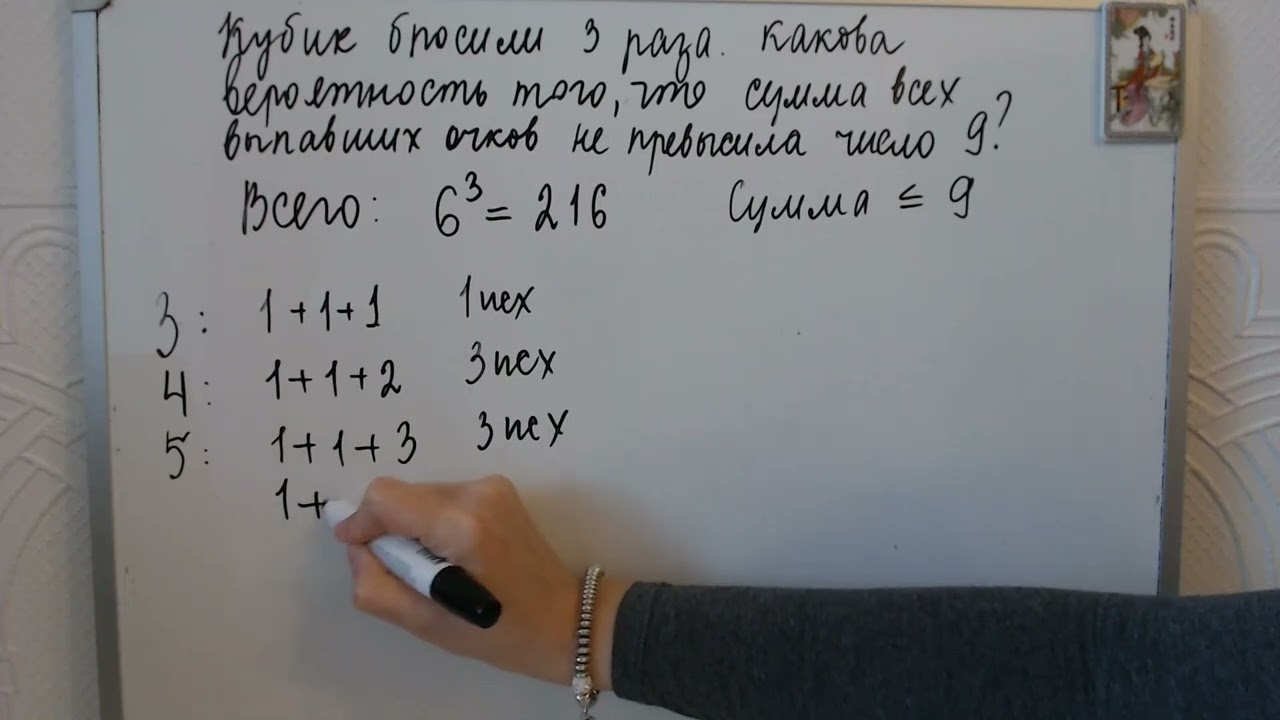 Кубик бросили 3 раза. Какова
вероятность того, что сумма всех
выпавших очков не превысила число 9?
Всего: 6³ = 216 Сумма ≤ 9
3: 1+1+1 1 исх
4: 1+1+2 3 исх
5: 1+1+3 3 исх
1+